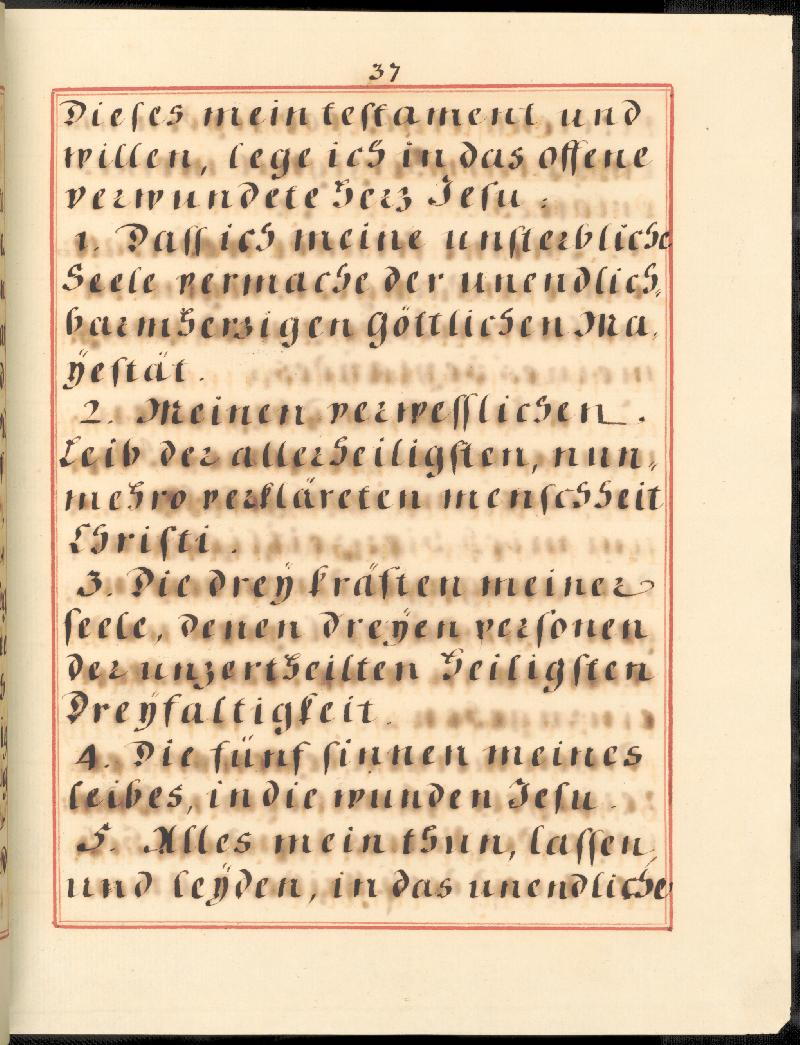 37
Dieſes mein teſtament und
willen, lege ich in das offene
verwundete Herz Jeſu.
1. Daſſ ich meine unſterbliche
Seele vermache der unendlich⸗
barmherzigen Göttlichen Ma⸗
ÿeſtät.
2. Meinen verweſſlichen
Leib der allerheiligſten, nun⸗
mehro verkläreten menſchheit
Chriſti.
3. Die dreÿ kräften meiner
ſeele, denen dreÿen perſonen
der unzertheilten Heiligſten
Dreÿfaltigkeit.
4. Die fünf ſinnen meines
leibes, in die wunden Jeſu.
5. Alles mein thun, laſſen,
und leÿden, in das unendliche